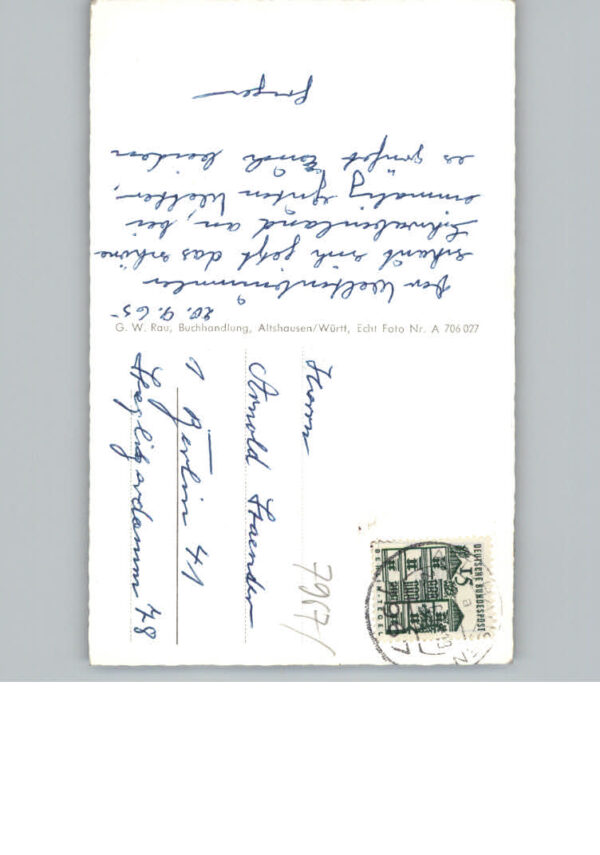 20. 9. 65
Der Weltenbummler
schaut sich jetzt das schöne
Schwabenland an, bei
einmalig guten Wetter,
es grüßt Euch beiden
G. W. Rau, Buchhandlung, Altshausen/Württ, Echt Foto Nr. A 706 027
Herrn
Arnold Staender
1 Berlin 41
Steglitzerdamm 78
7967/
DEUTSCHE BUNDESPOST
15
BERLIN-TEGEL